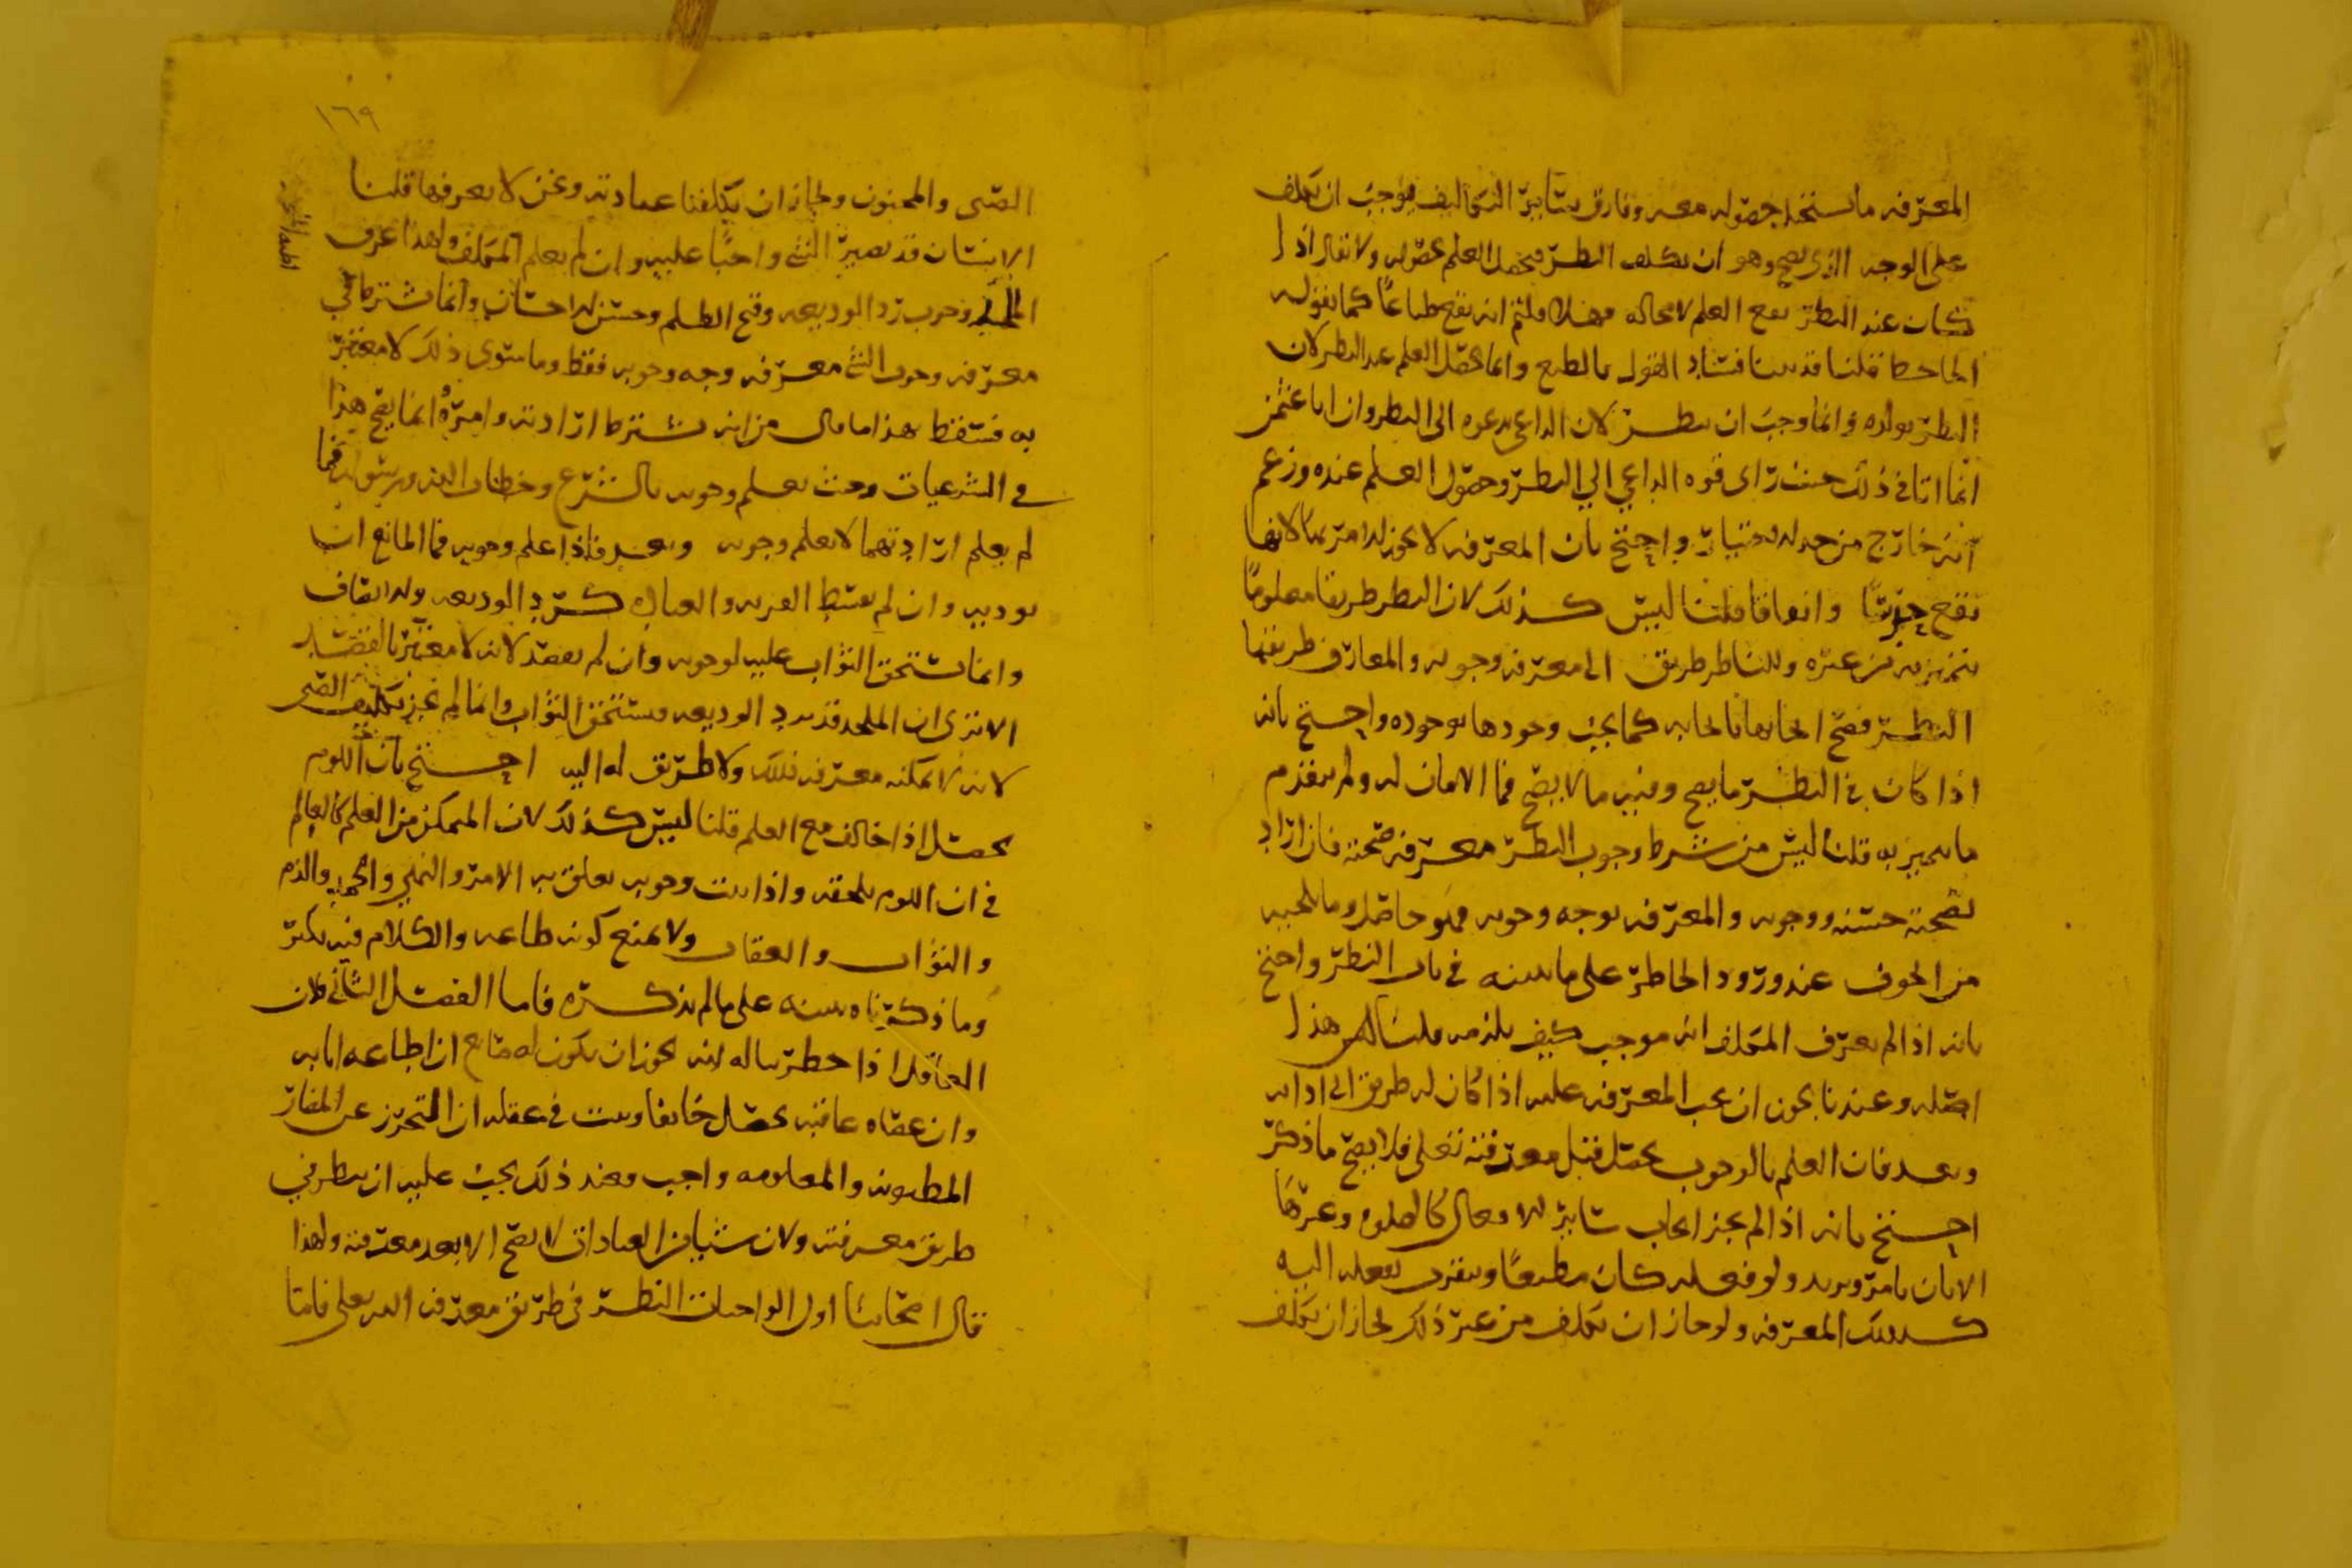 المعرفه ما يستحيل حصوله معه وفارق سائر التكاليف فوجب ان يكلف
على الوجه الذي يصح وهو ان يكلف النظر فيحصل العلم بحصوله ولا يقال اذا
كان عند النظر يقع العلم لا محاله فهلا قلتم انه يقع طباعًا كما يقوله
الجاحظ قلنا قد بينا فساد القول بالطبع وانما يحصل العلم عند النظر لان
النظر يولده وانما وجب ان ينظر لان الداعي يدعوه الى النظر وان ابا عثمن
انما اتا في ذلك حيث راى قوه الداعي الي النظر وحصول العلم عنده وزعم
انه خارج من حد الاختيار واحتج بان المعرفه لا يجوز الامر بها لانها
تقع حدسًا واتفاقا قلنا ليس كذلك لان النظر طريقا معلومًا
يتميز به من غيره وللناظر طريق الى معرفه وجوبه والمعارف طريقها
النظر فصح ايجابها بايجابه كما يجب وجودها بوجوده واحتج بانه
اذا كان في النظر ما يصح وفيه ما لا يصح فما الامان له ولم يتقدم
ما يميز به قلنا ليس من شرط وجوب النظر معرفه صحته فان اراد
بصحته حسنه ووجوبه والمعرفه بوجه وجوبه فهو حاصل وما يلجيه
من الخوف عند ورود الخاطر على ما نبينه في باب النظر واحتج
بانه اذا لم يعرف المكلف انه موجب كيف يلزمه قلنا ليس هذا
اصله وعندنا يجوز ان يجب المعرفه عليه اذا كان له طريق الى ادايه
وبعد فان العلم بالوجوب يحصل قبل معرفته تعلى فلا يصح ما ذكر
احتج بانه اذا لم يجز ايجاب سائر الافعال كالصلوه وغيرها
الا بان يامر ويريد ولو فعله كان مطيعًا ويتقرب بفعله اليه
كذلك المعرفه ولو جاز ان يكلف من غير ذلك لجاز ان يكلف
١٦٩
الصبى والمجنون ولجاز ان يكلفنا عبادته ونحن لا نعرفها قلنا
الانسان قد يصير الشي واجبًا عليه وان لم يعلم المكلف ولهذا عرف
الملحد وجوب رد الوديعه وقبح الظلم وحسن الاحسان وانما يشترط في
معرفه وجوب الشي معرفه وجه وجوبه فقط وما سوى ذلك لا معتبر
به فسقط هذا ما قال من انه يشترط ارادته وامره انما يصح هذا
في الشرعيات وحيث يعلم وجوبه بالشرع وخطاب الله ورسوله فما
لم يعلم ارادتهما لا يعلم وجوبه وبعد فاذا علم وجوبه فما المانع ان
يوديه وان لم يعتبط القربه والعباده كرد الوديعه والانصاف
وانما يستحق الثواب عليه لوجوبه وان لم يقصد لانه لا معتبر بالقصد
الا ترى ان الملحد قد يرد الوديعه فيستحق الثواب وانما لم يجز تكليف الصبى
لانه لا يمكنه معرفه ذلك ولا طريق له اليه احتج بان اللوم
يحصل اذا خالف مع العلم قلنا ليس كذلك لان المتمكن من العلم كالعالم
في ان اللوم يلحقه واذا ثبت وجوبه تعلق به الامر والنهي والحمد والذم
والثواب والعقاب ولا يمنع كونه طاعه والكلام فيه يكثر
وما ذكرناه ينبه على ما لم نذكره فاما الفصل الثاني فلان
العاقل اذا خطر بباله انه يجوز ان يكون له صانع ان اطاعه اثابه
وان عصاه عاقبه يحصل خايفا وثبت في عقله ان التحرز عن المضار
المظنونه والمعلومه واجب فعند ذلك يجب عليه ان ينظر في
طريق معرفته ولان شيا من العبادات لا يصح الا بعد معرفته ولهذا
قال اصحابنا اول الواجبات النظر في طريق معرفه الله تعلى فاما